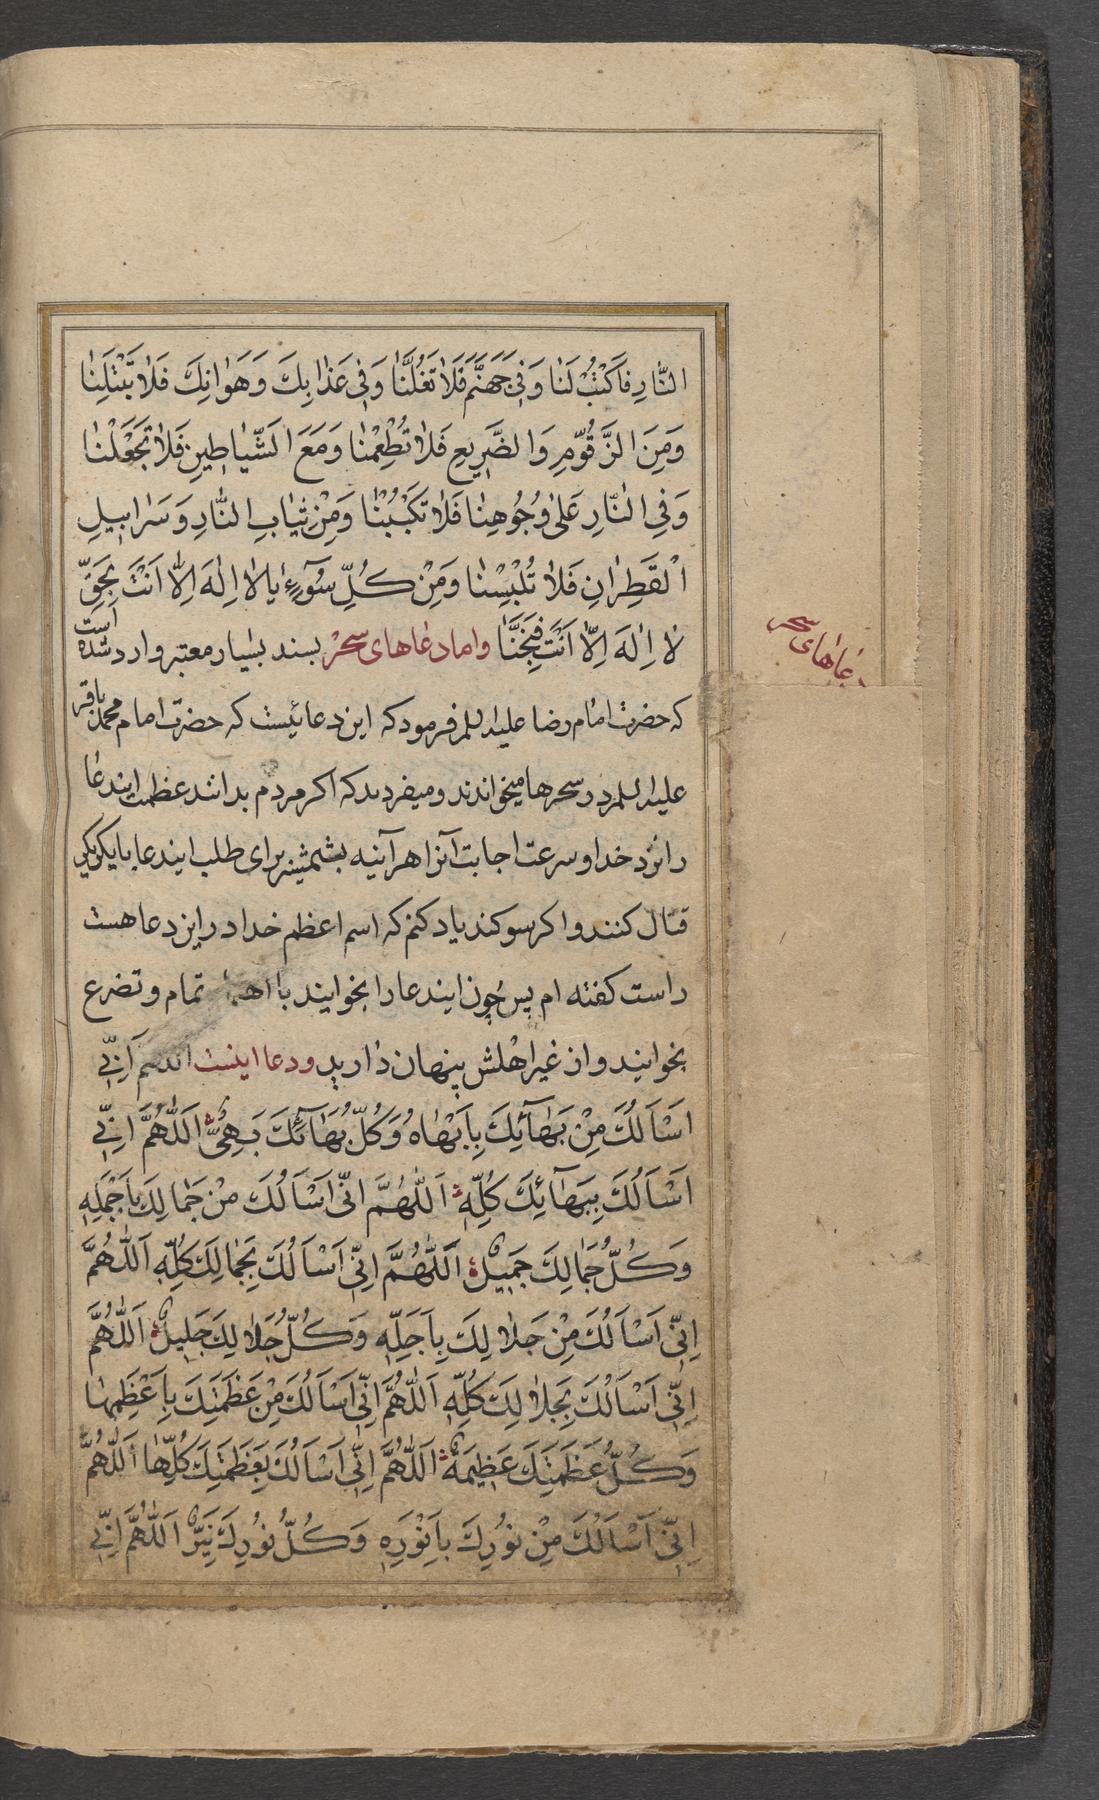 النَّارِ فَاَكْتُبْ لَنَا وَفِي جَهَنَّمَ فَلَا تَغُلَّنَا وَفِي عَذَابِكَ وَهَوَانِكَ فَلَا تَبْتَلِنَا
وَمِنَ الزَّقُّومِ وَالضَّرِيعِ فَلَا تُطْعِمْنَا وَمَعَ الشَّيَاطِينِ فَلَا تَجْعَلْنَا
وَفِي النَّارِ عَلَى وُجُوهِنَا فَلَا تَكْبُبْنَا وَمِنْ ثِيَابِ النَّارِ وَسَرَابِيلِ
الْقَطِرَانِ فَلَا تُلْبِسْنَا وَمِنْ كُلِّ سُوٓءٍ يَا لَا اِلٰهَ اِلَّا اَنْتَ بِحَقِّ
لَا اِلٰهَ اِلَّا اَنْتَ فَنَجِّنَا واما دعاهای سحر بسند بسیار معتبر وارد شده است
دعاهای سحر
که حضرت امام رضا علیه السلم فرمود که این دعائیست که حضرت امام محمد باقر
علیه السلم در سحرها میخواندند و میفرمودند که اکر مردم بدانند عظمت ایندعا
را نزد خدا و سرعت اجابت آنرا هرآینه بشمشیر برای طلب ایندعا با یکدیکر
قتال کنند و اکر سوکند یاد کنم که اسم اعظم خدا در این دعا هست
راست کفته ام پس چون ایندعا را بخوانید با تمام و تضرع
بخوانید و از غیر اهلش پنهان دارید و دعا اینست اللهم اِنِّي
اَسْاَلُكَ مِنْ بَهَآئِكَ بِاَبْهَاهُ وَكُلُّ بَهَآئِكَ بَهِيٌّ اَللّٰهُمَّ اِنِّي
اَسْاَلُكَ بِبَهَآئِكَ كُلِّهِ اَللّٰهُمَّ اِنِّي اَسْاَلُكَ مِنْ جَمَالِكَ بِاَجْمَلِهِ
وَكُلُّ جَمَالِكَ جَمِيلٌ اَللّٰهُمَّ اِنِّي اَسْاَلُكَ بِجَمَالِكَ كُلِّهِ اَللّٰهُمَّ
اِنِّي اَسْاَلُكَ مِنْ جَلَالِكَ بِاَجَلِّهِ وَكُلُّ جَلَالِكَ جَلِيلٌ اَللّٰهُمَّ
اِنِّي اَسْاَلُكَ بِجَلَالِكَ كُلِّهِ اَللّٰهُمَّ اِنِّي اَسْاَلُكَ مِنْ عَظَمَتِكَ بِاَعْظَمِهَا
وَكُلُّ عَظَمَتِكَ عَظِيمَةٌ اَللّٰهُمَّ اِنِّي اَسْاَلُكَ بِعَظَمَتِكَ كُلِّهَا اَللّٰهُمَّ
اِنِّي اَسْاَلُكَ مِنْ نُورِكَ بِاَنْوَرِهِ وَكُلُّ نُورِكَ نَيِّرٌ اَللّٰهُمَّ اِنِّي